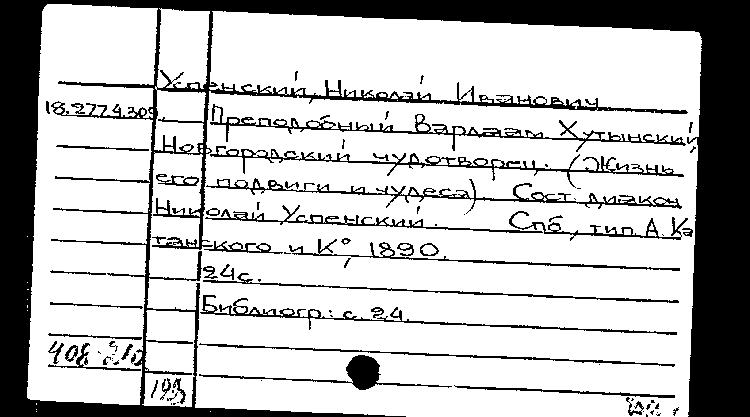 Успенский, Николай Иванович
18.277.4.309. Преподобный Варлаам Хутынский,
Новгородский чудотворец. (Жизнь
его, подвиги и чудеса). Сост. диакон
Николай Успенский. Спб, тип. А. Ка
танского и К°, 1890.
24 с.
Библиогр.: с. 24.
408-210